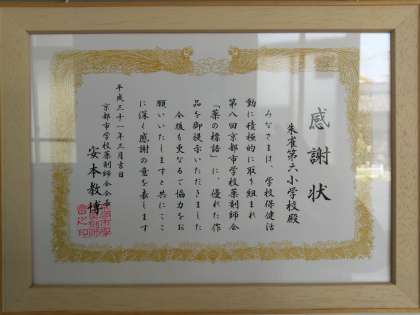 感謝状
朱雀第六小学校殿
みなさまは、学校保健活
動に積極的に取り組まれ
第八回京都市学校薬剤師会
「薬の標語」に、優れた作
品を御提示いただきました
今後も更なるご協力をお
願いいたしますと共にここ
に深く感謝の意を表します
平成三十一年三月吉日
京都市学校薬剤師会会長
安本教博